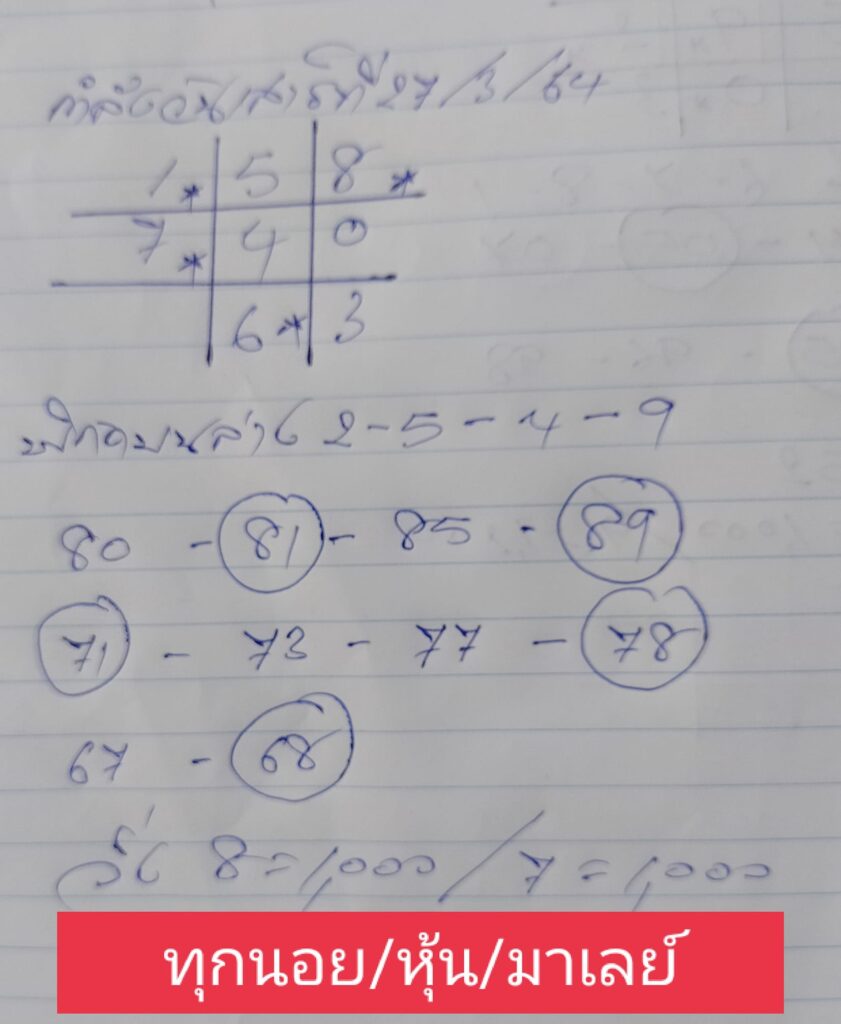 กำลังวันเสาร์ที่ 27/3/64
1* 5 8*
7* 4 0
6* 3
บนล่าง 2-5-4-9
80 - 81 - 85 - 89
71 - 73 - 77 - 78
67 - 68
วิ่ง 8=1,000/7=1,000
ทุกนอย/หุ้น/มาเลย์